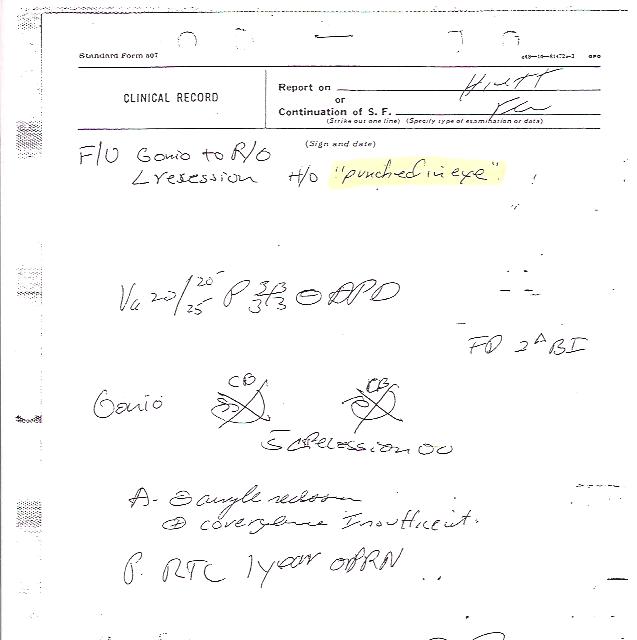 Standard Form 507
GPO
CLINICAL RECORD
Report on
or
Continuation of S. F.
(Strike out one line) (Specify type of examination or data)
(Sign and date)
F/U Gonio to R/O
L resession H/O "punched in eye"
Va 20/20⁻ 25 P 3/3 3/3 ⊖ APD
FD 2^Δ BI
CB CB
Gonio
Recession OU
A- ⊖ angle
⊕ covergence Insufficient.
P. RTC 1 year or PRN